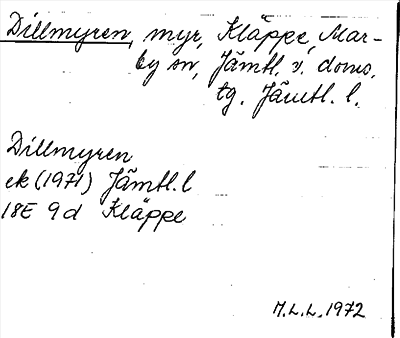 Dillmyren, myr, Kläppe, Mar-
by sn, Jämtl. v. doms.
tg. Jämtl. l.
Dillmyren
ek (1971) Jämtl. l
18E 9d Kläppe
M.L.L. 1972